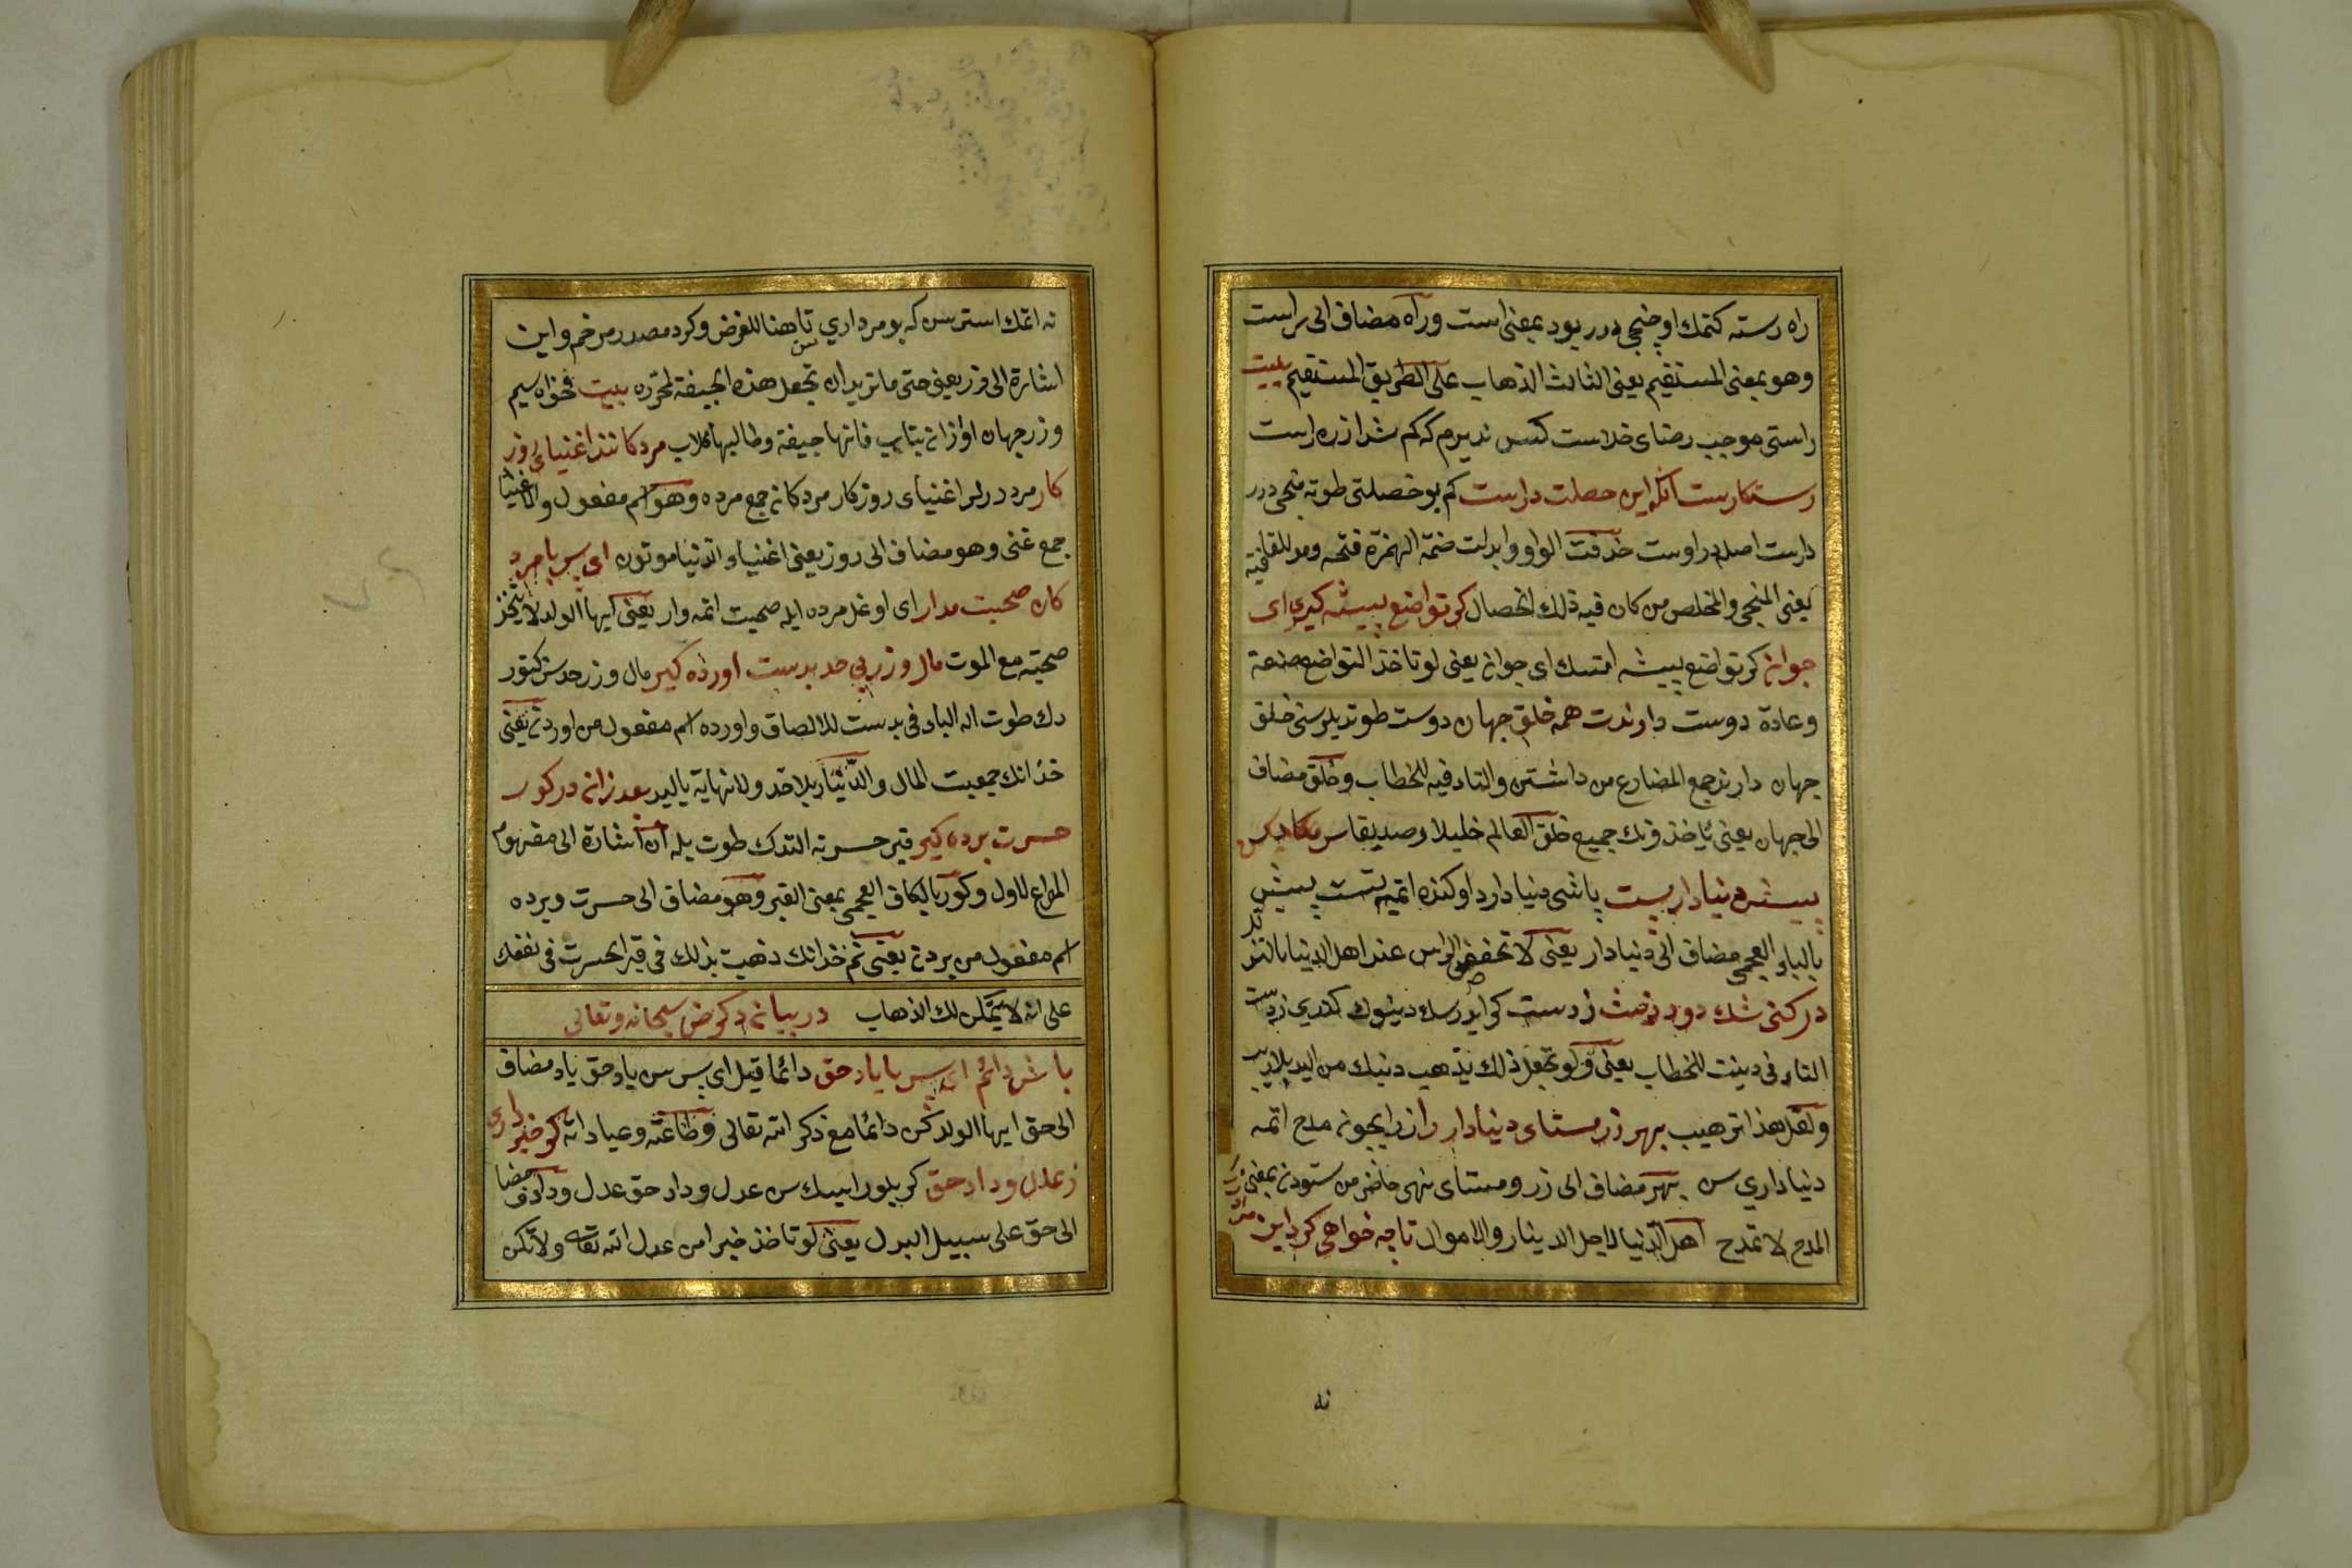 راه رسته كتمك اوچنجی درر بود بمعنی است وراه مضاف الی راست
وهو بمعنی المستقیم یعنی الثالث الذهاب علی الطریق المستقیم بیت
راستی موجب رضای خداست كس ندیدم که كم شد از ره راست
رستكارست آنكه این خصلت دراست كم بو خصلتی طوته منجی درر
دراست اصله در اوست حذفت الواو وابدلت ضمة الهمزة فتحه ومد للقافیه
یعنی المنجی والمخلص من كان فیه ذلك الخصال كر تواضع پیشه كیری ای
جوان كر تواضع پیشه ایتسك ای جوان یعنی لو تاخذ التواضع صنعة
وعادة دوست دارندت همه خلق جهان دوست طوتدیلر سنی خلق
جهان دارند جمع المضارع من داشتن والتاء فیه للخطاب وخلق مضاف
الی جهان یعنی یاخذونك جمیع خلق العالم خلیلا وصدیقا سر مكن
پیش دنیادار پست باشی دنیا دارد اوكنده اتمه پست پیش
بالباء العجمی مضاف الی دنیادار یعنی لا تخفض الراس عند اهل الدنیا بالتذلل
در كنی شك دود دینت ز دست كر ایدرسك دینوك كدری زدست
التاء فی دینت للخطاب یعنی ولو تجعل ذلك یذهب دینك من الید بلا ریب
ولعل هذا ترهیب بهر زر مستای دنیادار را زر ایچون مدح اتمه
دنیاداری سن بهر مضاف الی زر ومستای نهی حاضر من ستودن بمعنی
المدح لا تمدح اهل الدنیا لاجل الدینار والاموال تا چه خواهی كرد این مردار
نه
نه اتمك استرسن كه بو مرداری تا هنا للغرض وكرد مصدر مرخم واین
اشارة الی زر یعنی حتی ما ترید ان تجعل هذه الجیفة بیت مخواه سیم
وزر جهان او ازان بتاب فانها جیفة وطالبها كلاب مردكانند اغنیای روز
كار مرده درلر اغنیای روزكار مردكان جمع مرده وهو اسم مفعول والاغنیا
جمع غنی وهو مضاف الی روز یعنی اغنیاء الدنیا موتون ای پسر با مرد
كان صحبت مدار ای اوغل مرده ایله صحبت اتمه وار یعنی ایها الولد لا تتخذ
صحبة مع الموت مال وزر بی حد بدست آورده كیر مال وزر حدسز كتور
دك طوت اله الباء فی بدست للالصاق وآورده اسم مفعول من آوردن یعنی
خذ انك جمعیت المال والدنیا بلا حد ولا نهایة بالید بعد ازان در كور
حسرت برده كیر قبر حسرتنه التدك طوت یله ان اشارة الی مفهوم
المصراع الاول وكور بالكاف العجمی بمعنی القبر وهو مضاف الی حسرت وبرده
اسم مفعول من بردن یعنی ثم خذ انك ذهبت بذلك فی قبر الحسرت فی نفعك
علی انه لا یمكن لك الذهاب در بیان ذكر حق سبحانه وتعالی
باش دائم ای پسر با یاد حق دائما قیل ای پسر سن یاد حق یاد مضاف
الی حق ایها الولد كن دائما مع ذكر الله تعالی وطاعته وعباداته كر خبر داری
ز عدل وداد حق كر بیلورایسك سن عدل وداد حق عدل وداد مضاف
الی حق علی سبیل البدل یعنی لو تاخذ خبرا من عدل الله تعالی ولا تكن